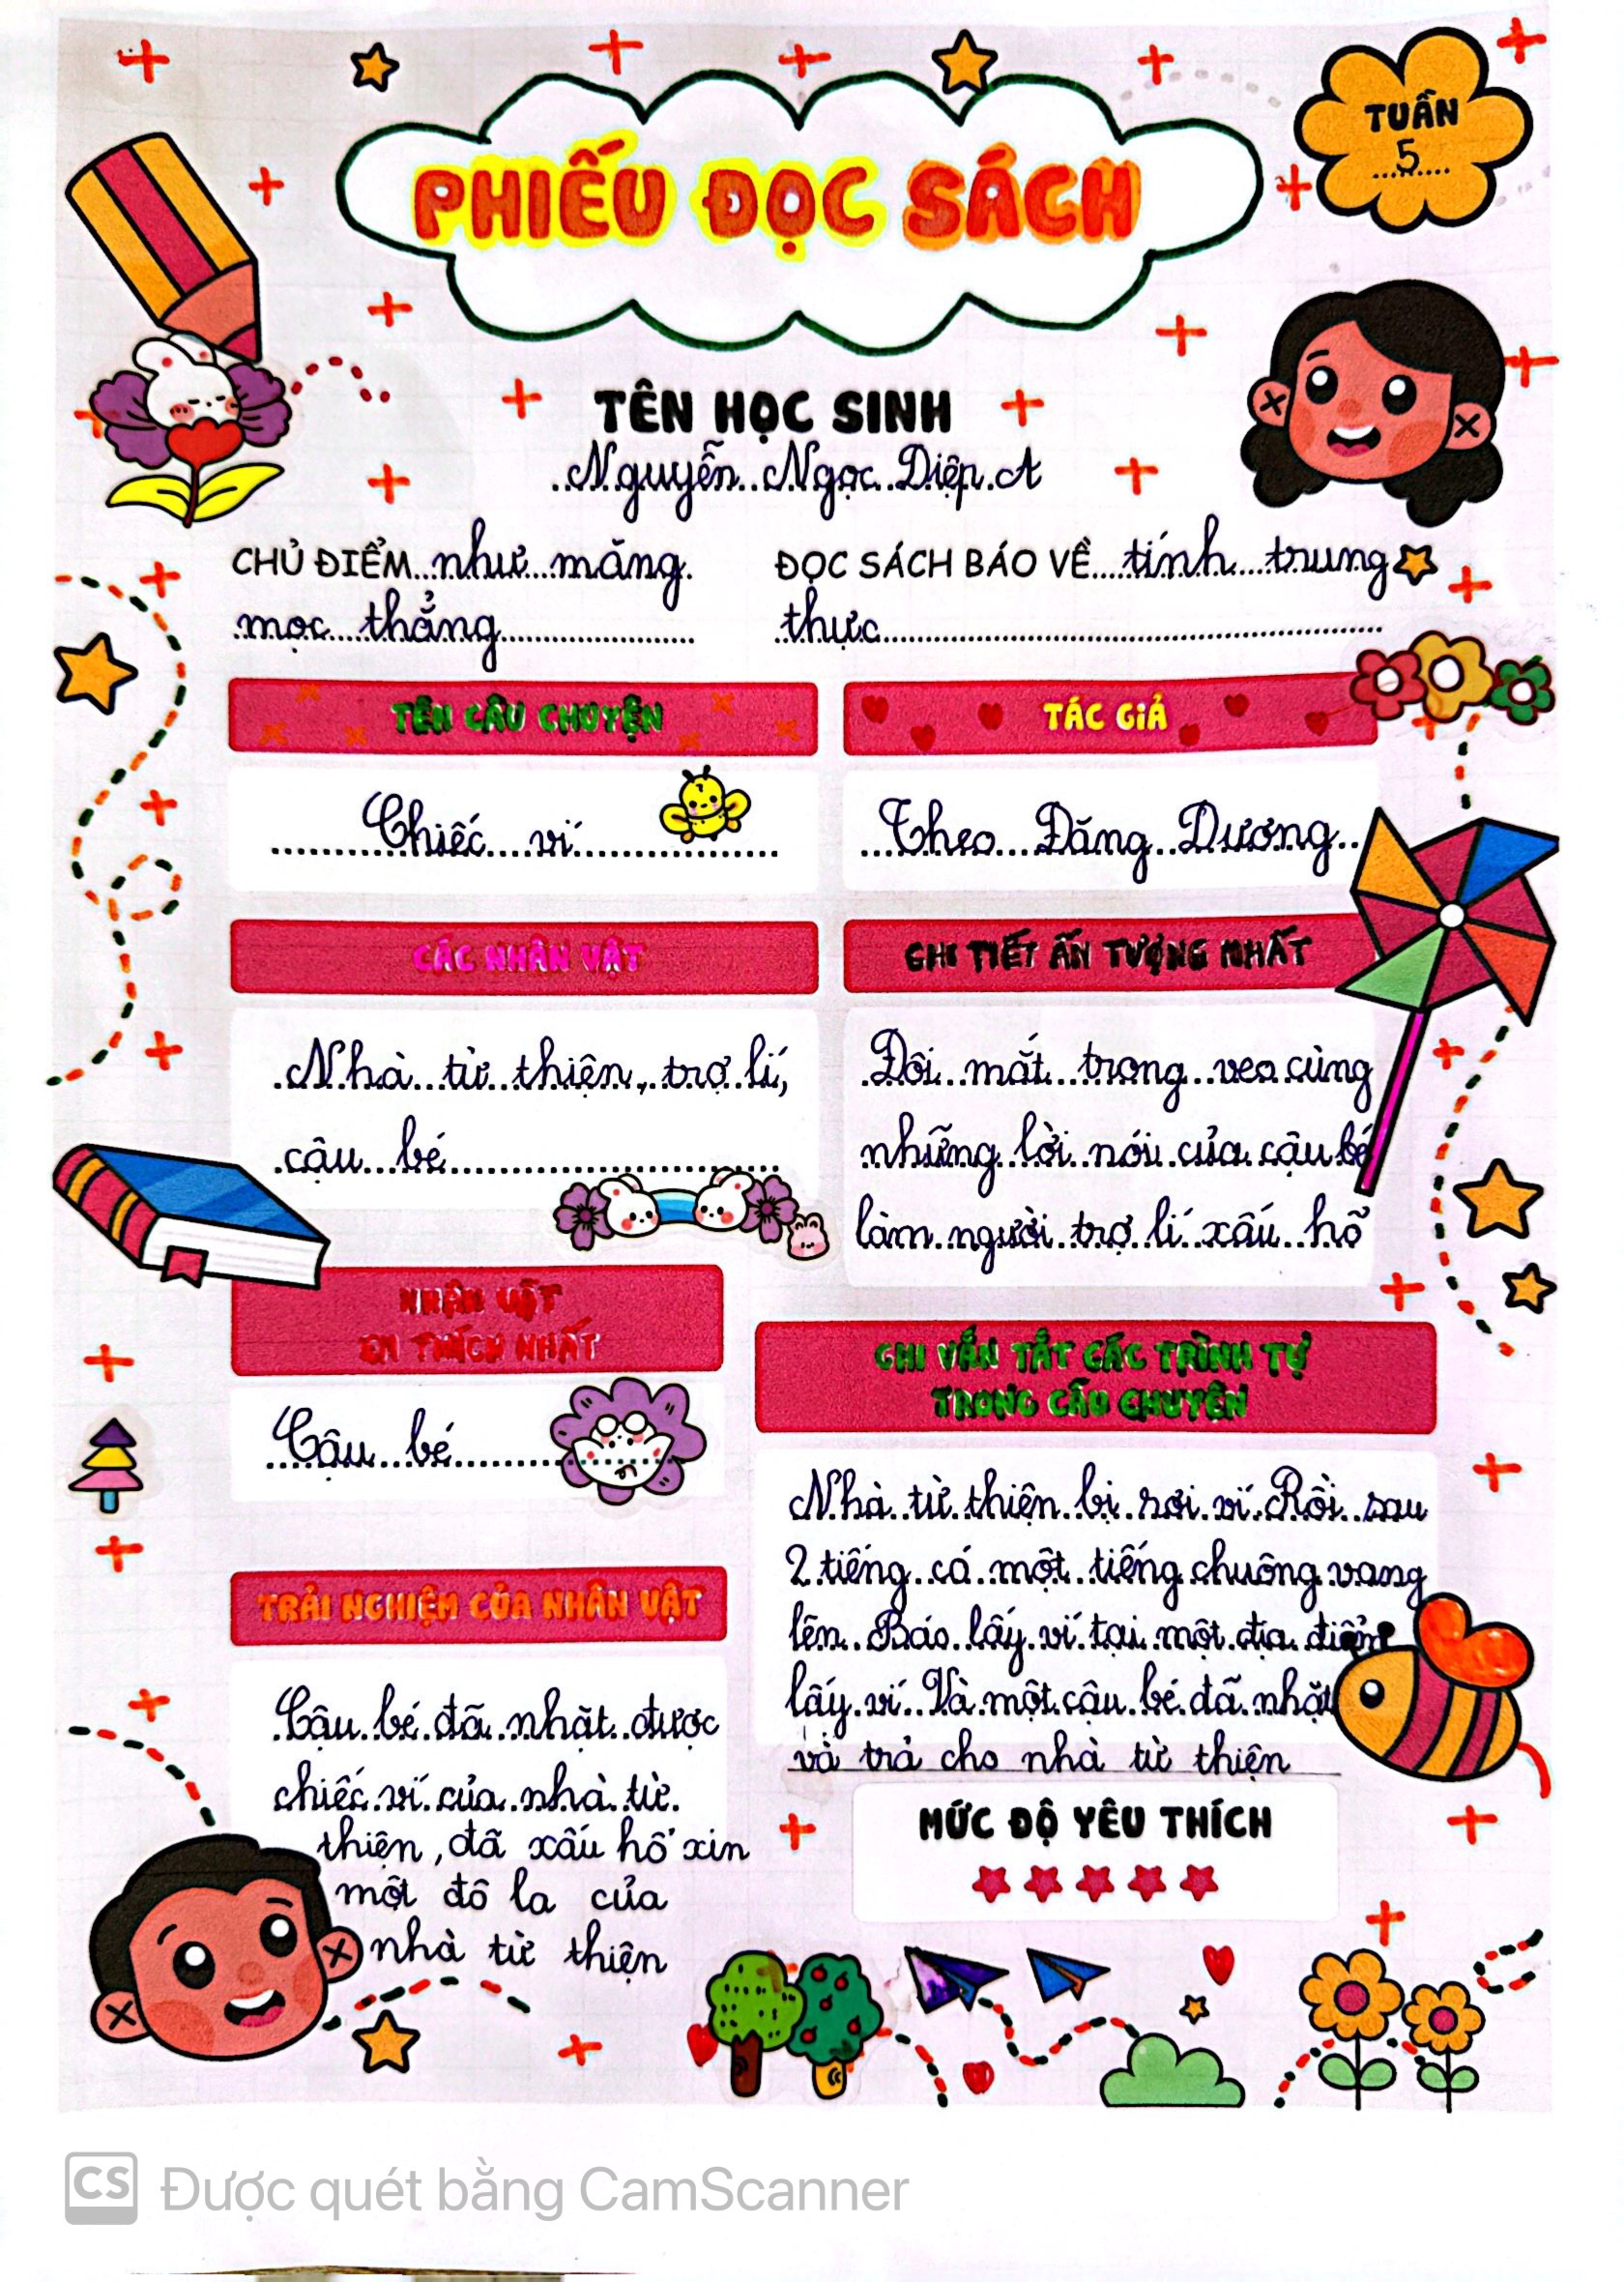 TUẦN
5
PHIẾU ĐỌC SÁCH
TÊN HỌC SINH
Nguyễn Ngọc Diệp A
CHỦ ĐIỂM như măng
mọc thẳng
ĐỌC SÁCH BÁO VỀ tính trung
thực
TÊN CÂU CHUYỆN
Chiếc ví
TÁC GIẢ
Theo Đăng Dương
CÁC NHÂN VẬT
Nhà từ thiện, trợ lí,
cậu bé
CHI TIẾT ẤN TƯỢNG NHẤT
Đôi mắt trong veo cùng
những lời nói của cậu bé
làm người trợ lí xấu hổ
NHÂN VẬT
EM THÍCH NHẤT
Cậu bé
GHI VẮN TẮT CÁC TRÌNH TỰ
TRONG CÂU CHUYỆN
Nhà từ thiện bị rơi ví. Rồi sau
2 tiếng có một tiếng chuông vang
lên. Báo lấy ví tại một địa điểm
lấy ví. Và một cậu bé đã nhặt
và trả cho nhà từ thiện
TRẢI NGHIỆM CỦA NHÂN VẬT
Cậu bé đã nhặt được
chiếc ví của nhà từ
thiện, đã xấu hổ xin
một đô la của
nhà từ thiện
MỨC ĐỘ YÊU THÍCH
CS Được quét bằng CamScanner